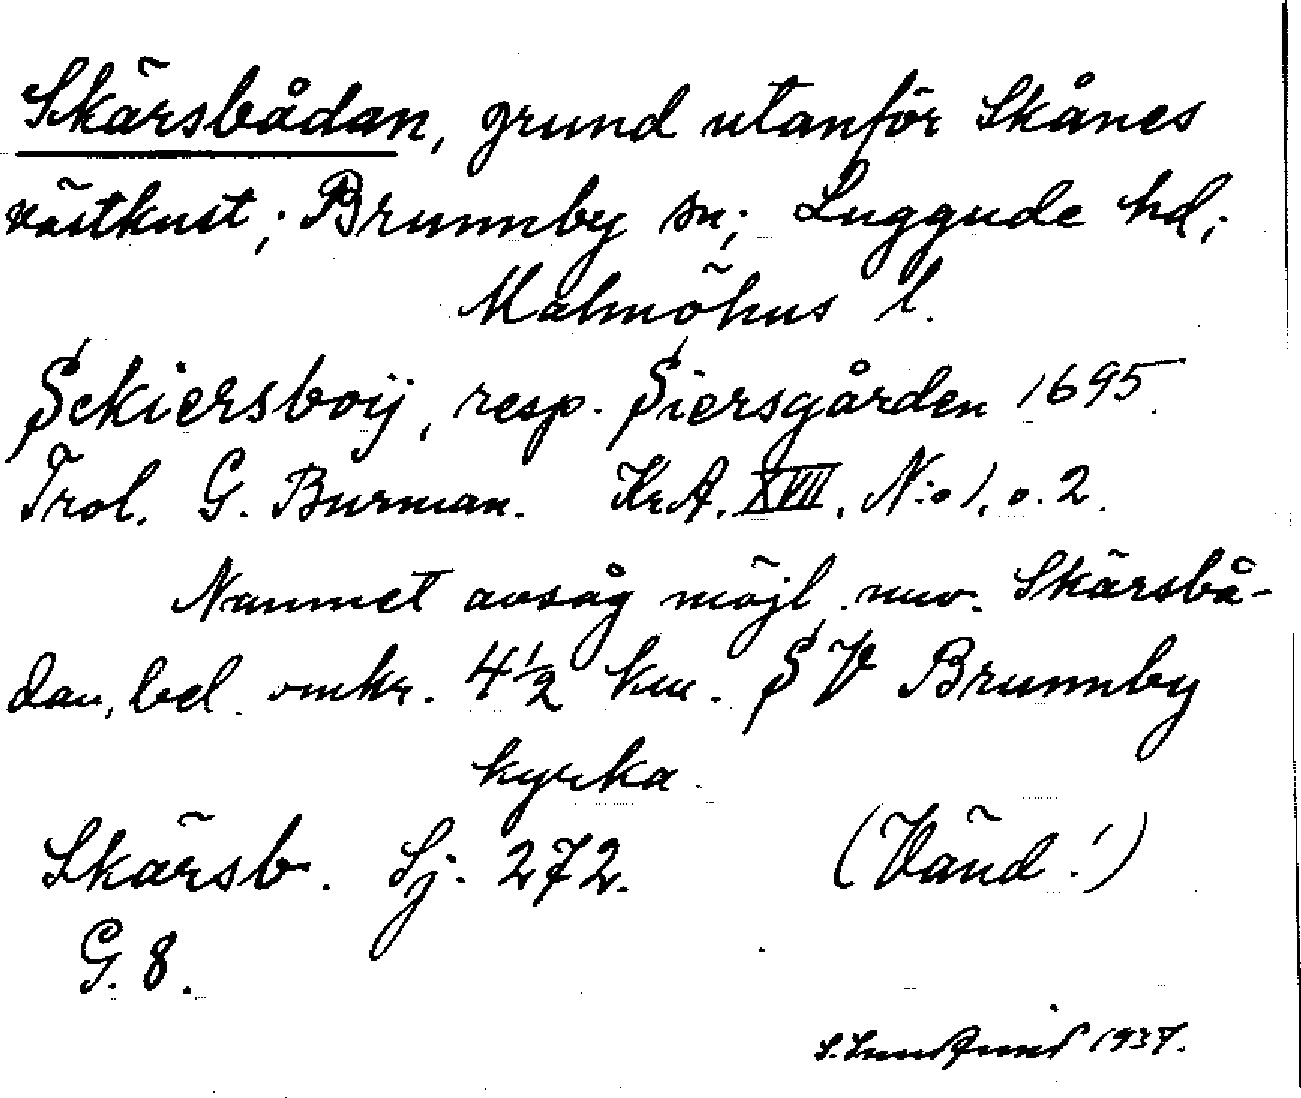 Skärsbådan, grund utanför Skånes
västkust; Brunnby sn; Luggude hd;
Malmöhus l.
Sckiersboij, resp. Siersgården 1695.
Trol. G. Burman. KrA. XVII. N:o 1. o. 2.
Namnet avsåg möjl. nuv. Skärsbå-
dan, bel. omkr. 4½ km. SV Brunnby
kyrka.
Skärsb. Sj. 272. (Vänd!)
G. 8.
1937.